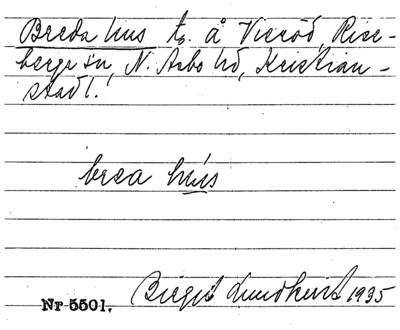 Breda hus tg. å Vieröd, Rise-
berga sn, N. Åsbo hd, Kristian-
stads l.
brea hús
Nr 5501. Birgit Lundkvist 1935